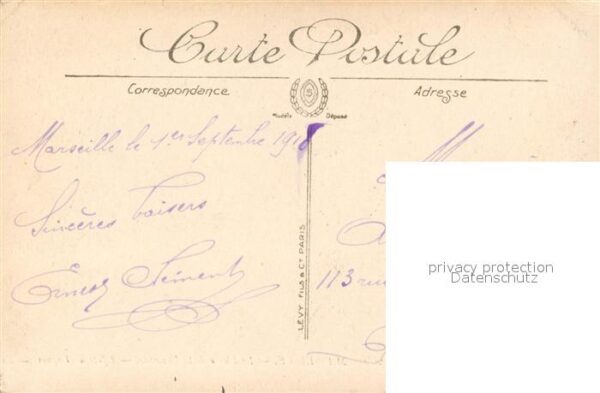 Carte Postale
Correspondance
Adresse
Modèle Déposé
Marseille le 1er Septembre 1918
Sincères baisers
Ernest
LÉVY FILS & Cie PARIS
113 rue
privacy protection
Datenschutz